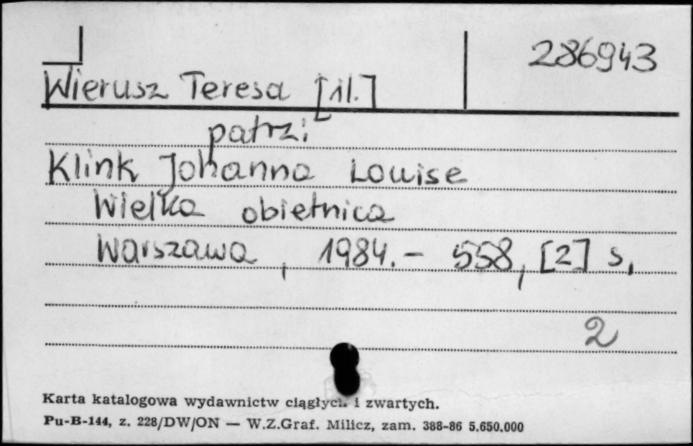 286943
Wierusz Teresa [il.]
patrz:
Klink Johanna Louise
Wielka obietnica
Warszawa, 1984.- 558, [2] s.
2
Karta katalogowa wydawnictw ciągłych i zwartych.
Pu-B-144, z. 228/DW/ON — W.Z.Graf. Milicz, zam. 388-86 5.650.000